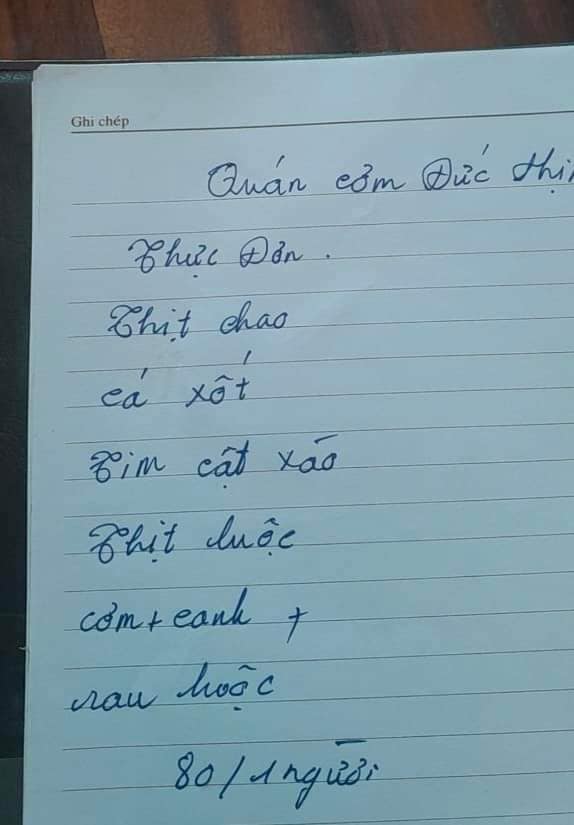 Ghi chép
Quán cơm Đức Thị
Thực Đơn.
Thịt chao
cá xốt
Tim cật xào
Thịt luộc
cơm + canh +
rau
80/1 người